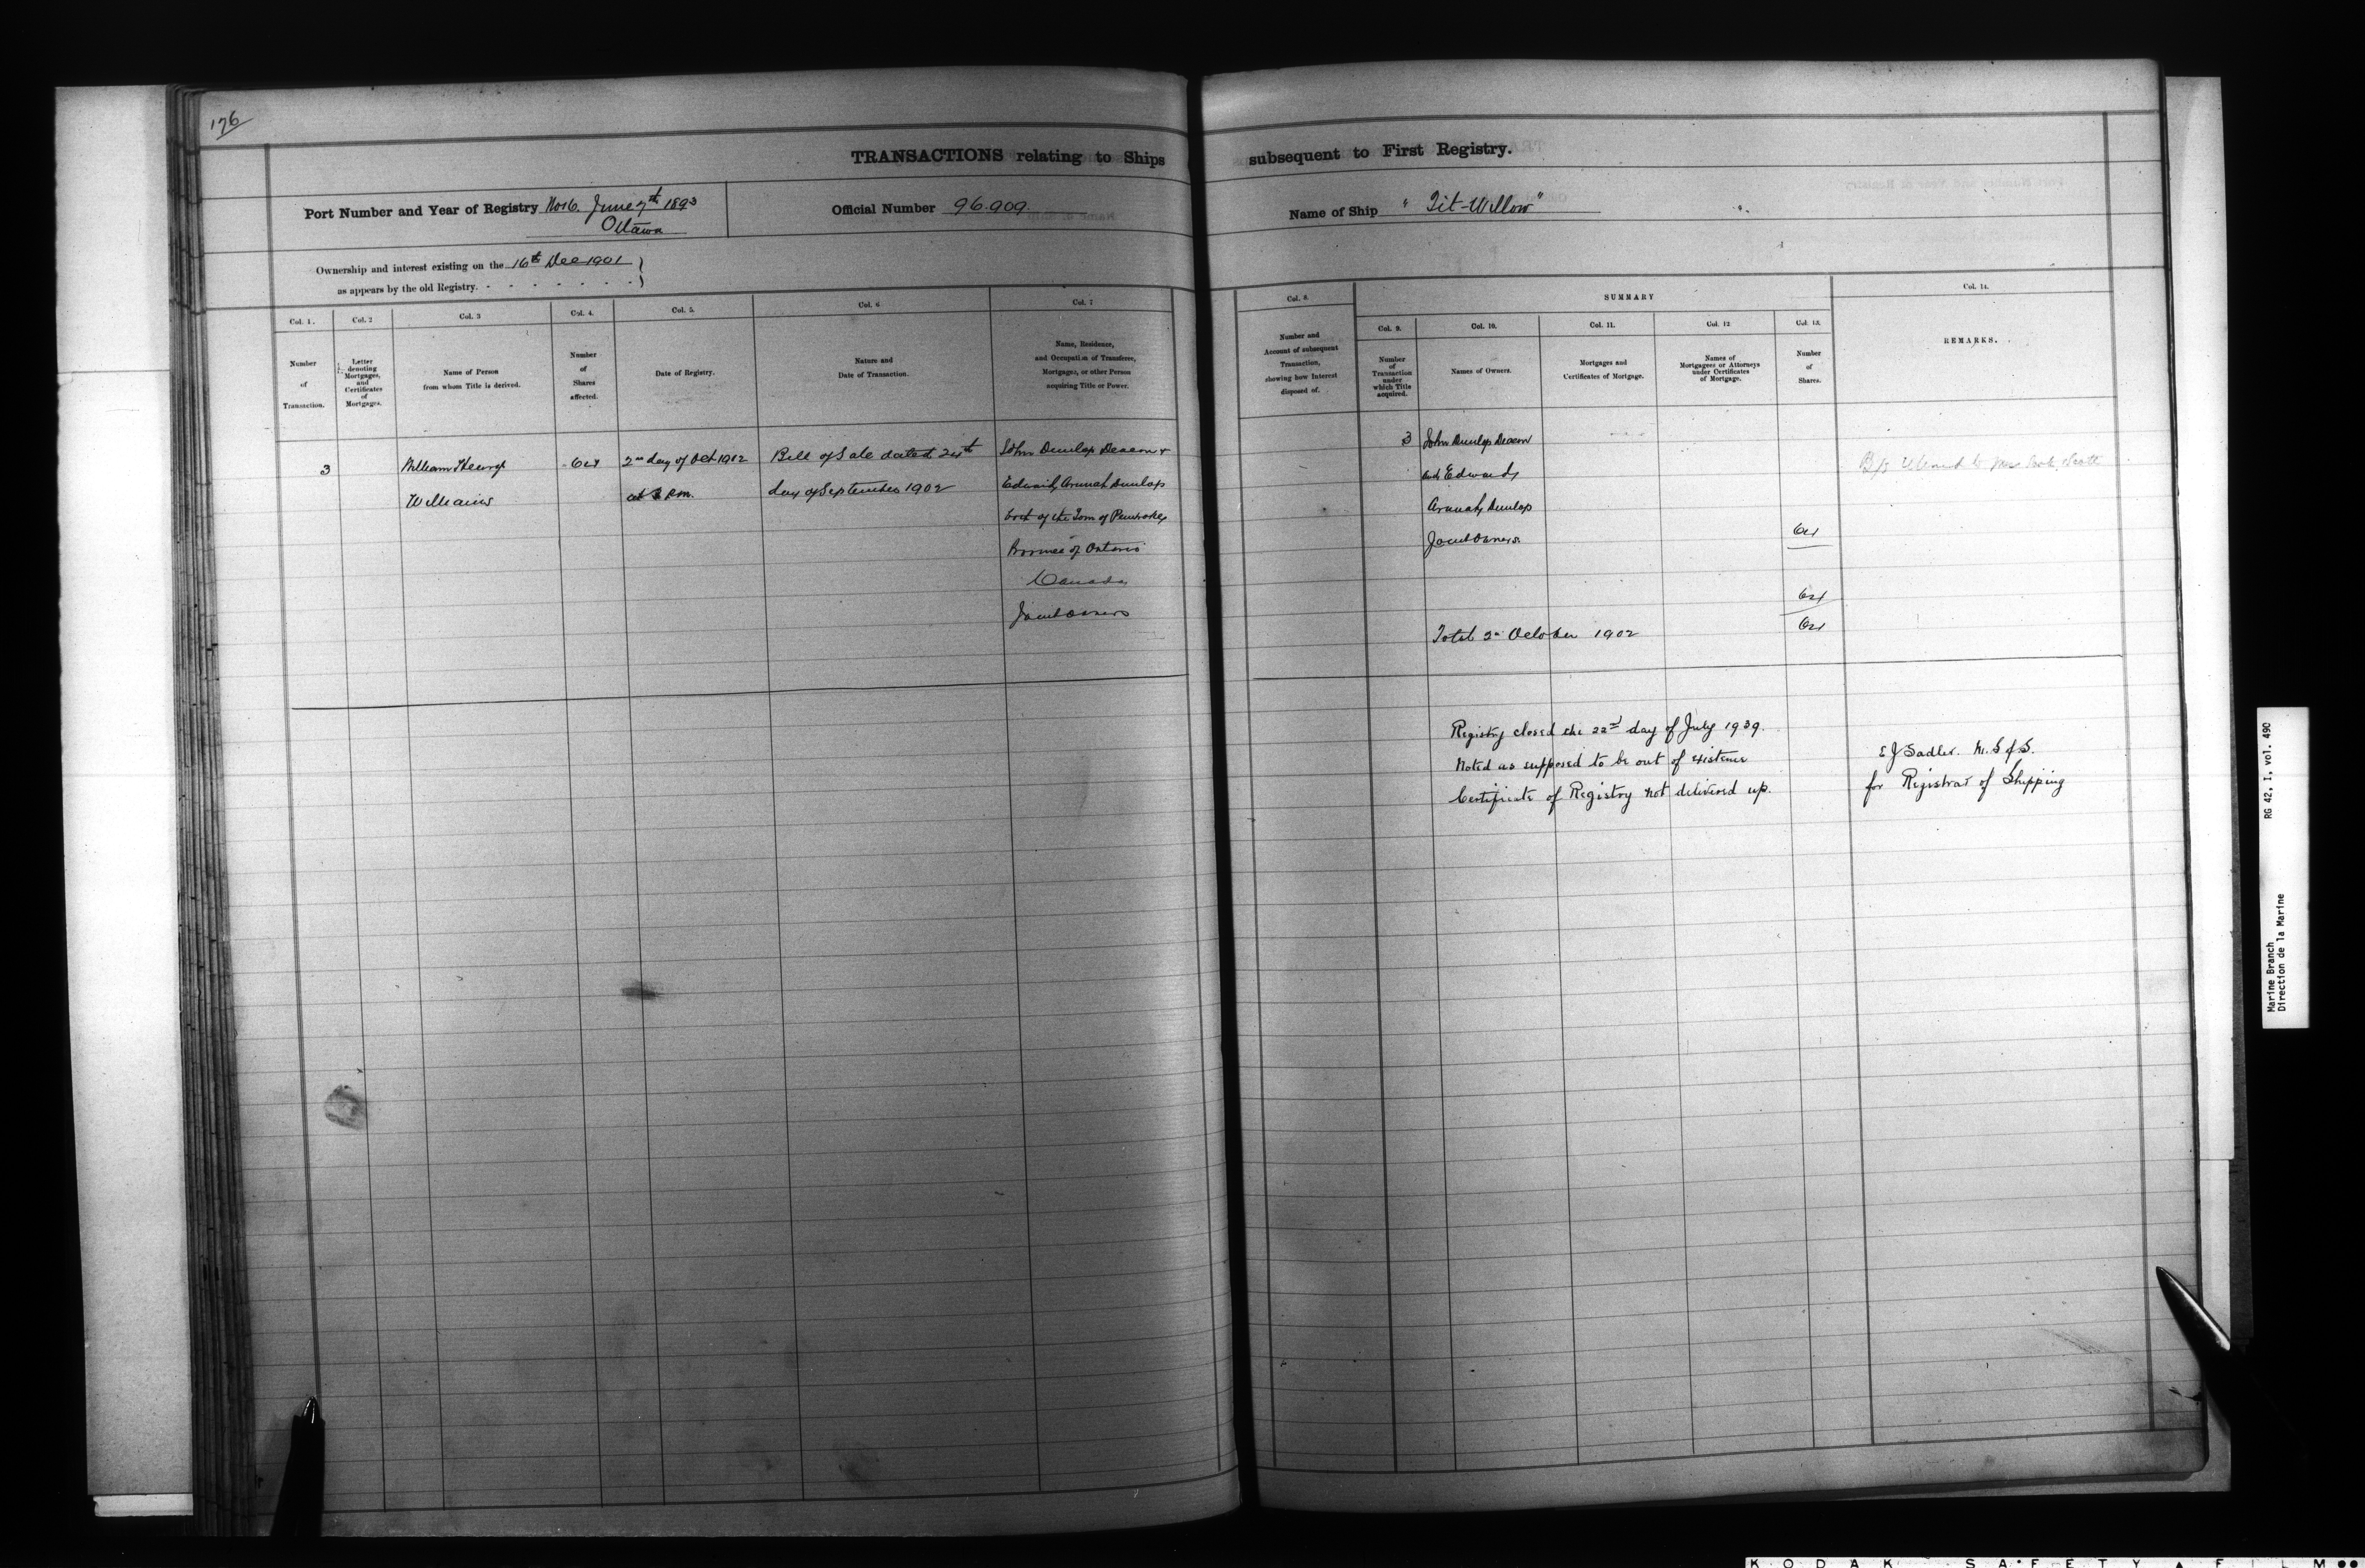 176
TRANSACTIONS relating to Ships subsequent to First Registry.
Port Number and Year of Registry No 16. June 7th 1893
Ottawa
Official Number 96.909.
Name of Ship "Tit-Willow"
Ownership and interest existing on the 16th Dec 1901
as appears by the old Registry.
Col. 1.
Number
of
Transaction.
Col. 2
Letter
denoting
Mortgages,
and
Certificates
of
Mortgages.
Col. 3
Name of Person
from whom Title is derived.
Col. 4.
Number
of
Shares
affected.
Col. 5.
Date of Registry.
Col. 6
Nature and
Date of Transaction.
Col. 7
Name, Residence,
and Occupation of Transferee,
Mortgagee, or other Person
acquiring Title or Power.
3
William Henry
Williams
64
2nd day of Oct 1902
at 3 P.m.
Bill of Sale dated 24th
day of September 1902
John Dunlop Deacon &
Edward Arunah Dunlop
both of the Town of Pembroke
Province of Ontario
Canada
Joint Owners
Col. 8.
Number and
Account of subsequent
Transaction,
showing how Interest
disposed of.
SUMMARY
Col. 9.
Number
of
Transaction
under
which Title
acquired.
Col. 10.
Names of Owners.
Col. 11.
Mortgages and
Certificates of Mortgage.
Col. 12
Names of
Mortgagees or Attorneys
under Certificates
of Mortgage.
Col. 13.
Number
of
Shares.
Col. 14.
REMARKS.
3
John Dunlop Deacon
and Edward
Arunah Dunlop
Joint Owners.
64
64
Total 2nd October 1902
64
B/s
Scott
Registry closed the 22nd day of July 1939.
Noted as supposed to be out of existence
Certificate of Registry not delivered up.
E J Sadler. M. S of S.
for Registrar of Shipping
RG 42, I, vol. 490
Marine Branch
Direction de la Marine
KODAK SAFETY FILM